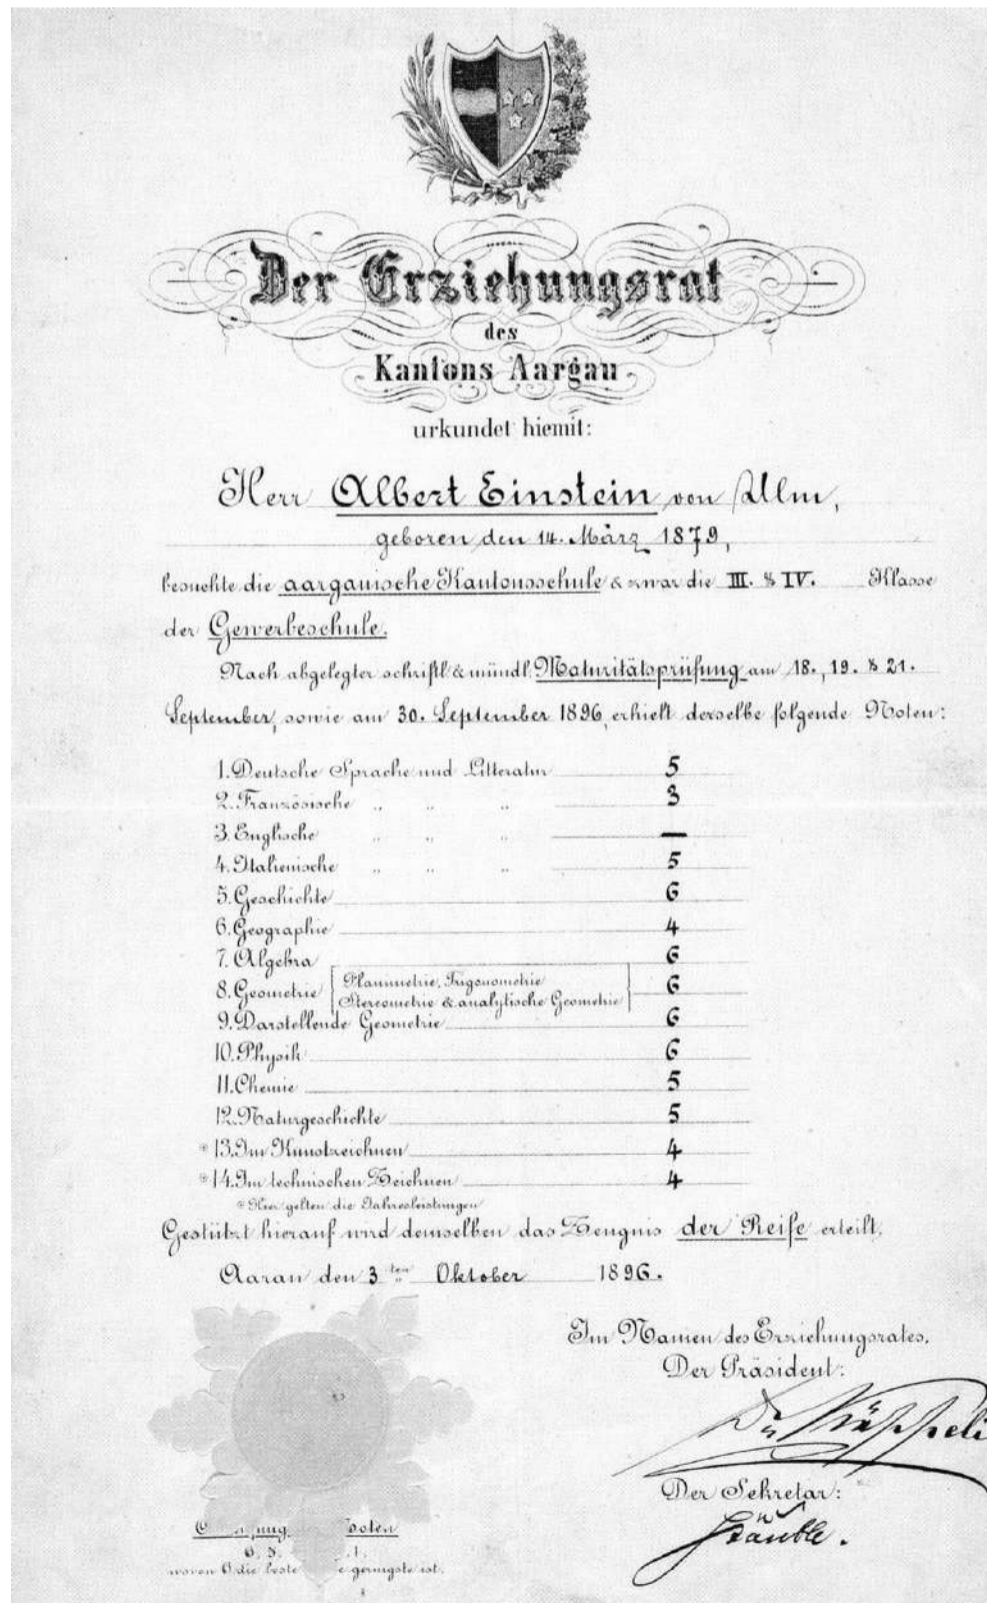 Der Erziehungsrat
des
Kantons Aargau
urkundet hiemit:
Herr Albert Einstein von Ulm,
geboren den 14. März 1879,
besuchte die aargauische Kantonsschule & zwar die III. & IV. Klasse
der Gewerbeschule.
Nach abgelegter schriftl. & mündl. Maturitätsprüfung am 18., 19. & 21.
September, sowie am 30. September 1896, erhielt derselbe folgende Noten:
1. Deutsche Sprache und Litteratur 5
2. Französische „ „ „ 3
3. Englische „ „ „ —
4. Italienische „ „ „ 5
5. Geschichte 6
6. Geographie 4
7. Algebra 6
8. Geometrie Planimetrie, Trigonometrie 6
Stereometrie & analytische Geometrie
9. Darstellende Geometrie 6
10. Physik 6
11. Chemie 5
12. Naturgeschichte 5
* 13. Im Kunstzeichnen 4
* 14. Im technischen Zeichnen 4
* Hier gelten die Jahresleistungen
Gestützt hierauf wird demselben das Zeugnis der Reife erteilt.
Aarau den 3ten Oktober 1896.
Im Namen des Erziehungsrates,
Der Präsident:
Dr Käppeli
Der Sekretär:
Stäuble.
Noten
6, 5. 1.
wovon 6 die beste geringste ist.